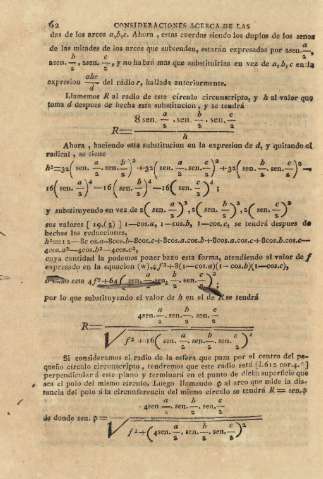 62 CONSIDERACIONES ACERCA DE LAS
das de los arcos a,b,c. Ahora, estas cuerdas siendo los duplos de los senos
de las mitades de los arcos que subtenden, estarán expresadas por 2sen. a/2,
2sen. b/2, 2sen. c/2, y no habrá mas que substituirlas en vez de a, b, c en la
expresion abc/d del rádio r, hallada anteriormente.
Llamemos R al radio de este círculo circunscripto, y h al valor que
toma d despues de hecha esta substitucion, y se tendrá
R = 8 sen. a/2 . sen. b/2 . sen. c/2 / h
Ahora, haciendo esta substitucion en la expresion de d, y quitando el
radical, se tiene
h²=32(sen. a/2 . sen. b/2)²+32(sen. a/2 . sen. c/2)²+32(sen. b/2 . sen. c/2)²—
16(sen. a/2)⁴—16(sen. b/2)⁴—16(sen. c/2)⁴;
y substituyendo en vez de 2(sen. a/2)², 2(sen. b/2)², 2(sen. c/2)²
sus valores [19.(2)] 1—cos.a, 1—cos.b, 1—cos.c, se tendrá despues de
hechas las reducciones.
h²=12—8cos.a—8cos.b—8cos.c+8cos.a.cos.b+8cos.a.cos.c+8cos.b.cos.c—
4cos.a²—4cos.b²—4cos.c²,
cuya cantidad la podemos poner baxo esta forma, atendiendo al valor de f
expresado en la equacion (w),4f²+8(1—cos.a)(1—cos.b)(1—cos.c),
esto 4f²+64(sen. a/2 . sen. b/2 . sen. c/2)²;
por lo que substituyendo el valor de h en el de R se tendrá
R = 4sen. a/2 . sen. b/2 . sen. c/2 / √f²+16(sen. a/2 . sen. b/2 . sen. c/2)²
Si consideramos el radio de la esfera que pasa por el centro del pe-
queño círculo circunscripto, tendremos que este radio será [I.612 cor.4.°]
perpendicular á este plano y rematará en el punto de dicha superficie que
sea el polo del mismo círculo. Luego llamando φ al arco que mide la dis-
tancia del polo á la circunferencia del mismo círculo se tendrá R = sen.φ
de donde sen. φ = 4sen a/2 . sen. b/2 . sen. c/2 / √f²+(4sen. a/2 . sen. b/2 . sen. c/2)²